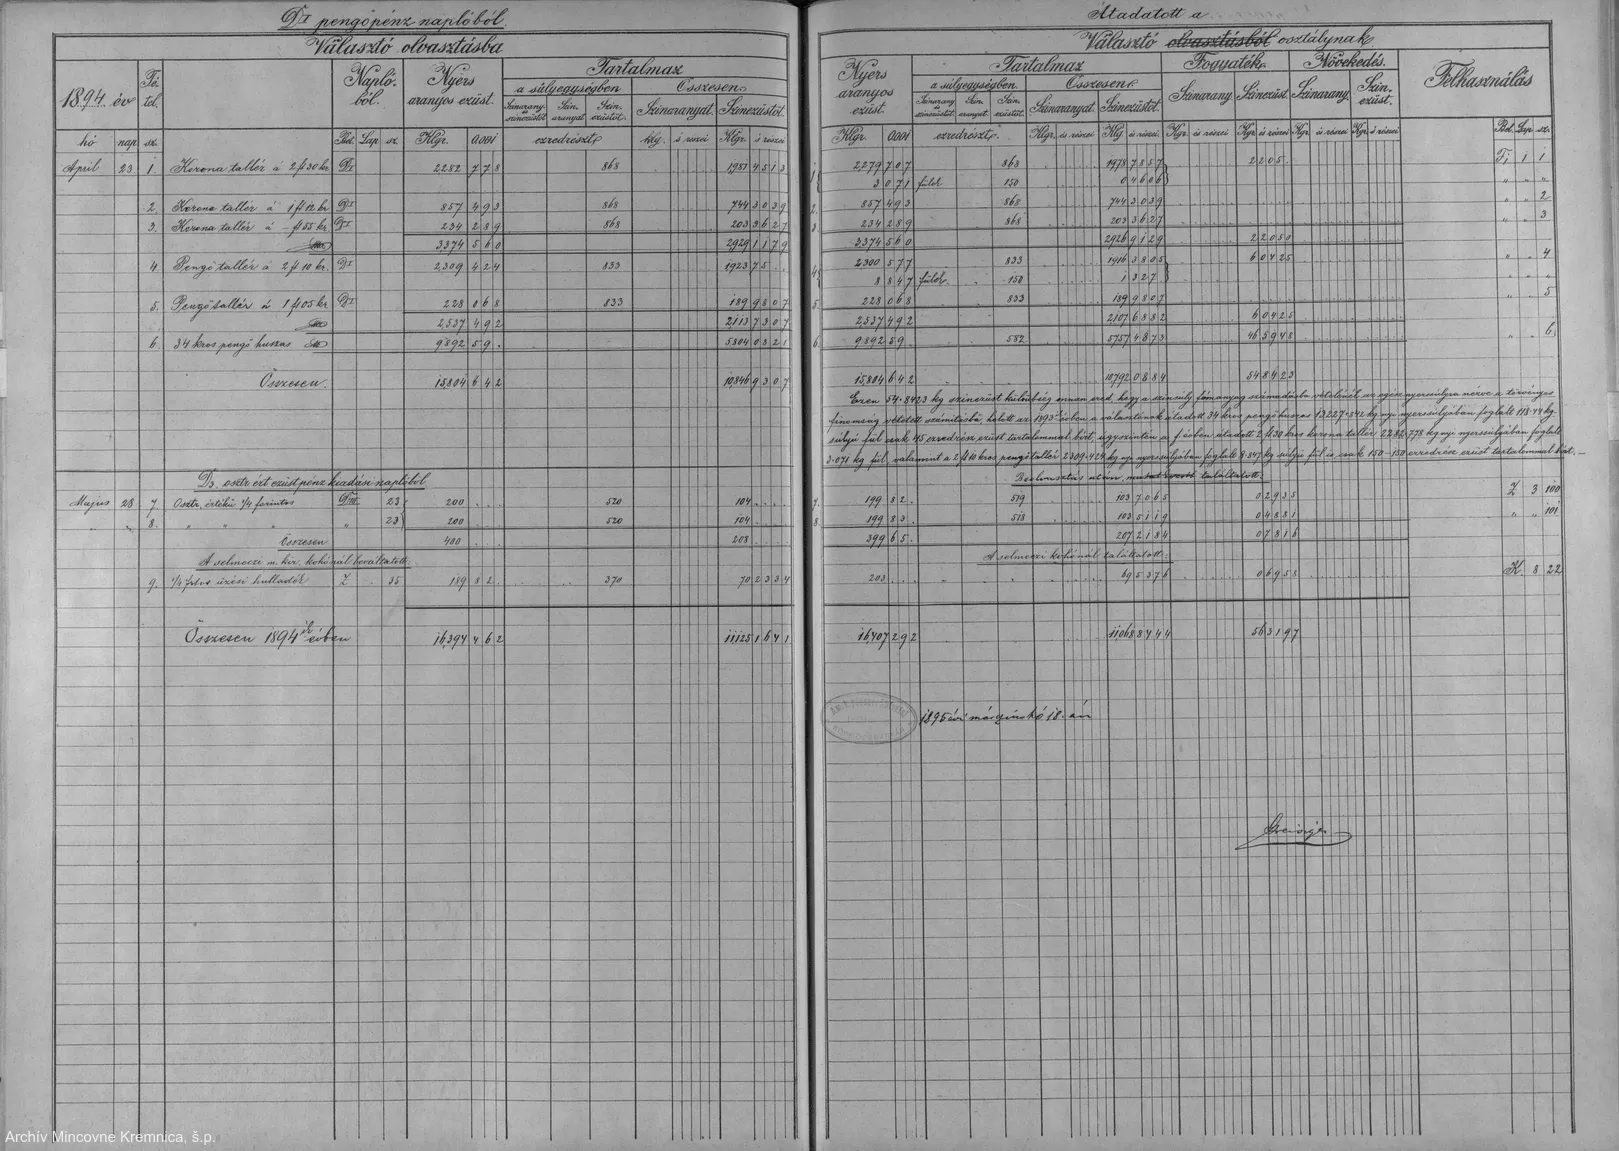 D₁ pengőpénz naplóból.
Választó olvasztásba
1894. év
Té-
tel.
Napló-
ból.
Nyers
aranyos ezüst.
Tartalmaz
a súlyegységben
Összesen
Színarany
és
színezüstöt
Szín-
aranyat
Szín-
ezüstöt
Színaranyat
Színezüstöt
hó nap sz.
Bet. Lap sz.
Klgr. 0.001
ezredrészt
klg. és részei
Klgr. és részei
April 23 1. Korona tallér à 2 ft 30 kr D₁ 2282 778 868 1981 4513
2. Korona tallér à 1 ft 12 kr D₁ 857 493 868 744 3039
3. Korona tallér à - ft 55 kr D₁ 234 289 868 203 3627
3374 560 2929 1179
4 Pengő tallér à 2 ft 10 kr. D₁ 2309 424 833 1923 75
5. Pengőtallér à 1 ft 05 kr D₁ 228 068 833 189 9807
2,537 492 2,113 7307
6. 34 kros pengő huszas 9892 59 5804 0821
Összesen. 15,804 642 10,846 9307
D₃ osztr. ért ezüst pénz kiadási naplóból
Majus 28 7. Osztr. értékű 1/4 forintos 23 200 520 104
" " 8. " " " " 23 200 520 104
Összesen 400 208
A selmeczi m. kir. kohónál beváltatott:
9. 1/4 frtos űzési hulladér Z 35 189 82 370 70 2334
Összesen 1894 ik évben 16,394 462 11,125 1641
Átadatott a
Választó olvasztásból osztálynak
Nyers
aranyos
ezüst.
Tartalmaz
a súlyegységben
Összesen
Színarany
és
színezüstöt
Szín-
aranyat
Szín-
ezüstöt
Színaranyat
Színezüstöt.
Fogyaték
Színarany Színezüst.
Növekedés.
Színarany
Szín-
ezüst.
Felhasználás
Klgr. 0.001
ezredrészt
Klgr. és részei
Klg és részei
Kgr. és részei
Kgr. és részei
Kgr. és részei
Kgr. és részei
Bet. Lap sz.
1 2279 707 868 1978 7857 2205 1 1
3 071 fülek 150 0 4606 " " "
2. 857 493 868 744 3039 " " 2
3 234 289 868 203 3627 " " 3
3374 560 2926 9129 2 2050
4 2300 577 833 1916 3805 6 0425 " " 4
8 847 fülek 150 1 327 " " "
5. 228 068 833 189 9807 " " 5
2537 492 2107 6882 6 0425
6. 9892 59 582 5757 4873 46 5948 " " 6
15,804 642 10792 0884 54 8423
Ezen 54.8423 kg színezüst külömbség onnan ered, hogy a színsúly főmányag számadásba vételénél, az egész nyerssúlyra nézve a törvényes
finomság vétetett számításba, holott az 1893 évben a választónak átadott 34 kros pengőhuszas 13227.242 kg nyi nyerssúlyában foglalt 118.44 kg.
súlyu fül csak 45 ezredrész ezüst tartalommal bírt, úgyszintén a f. évben átadott 2 ft 30 kros korona tallér 2282.778 kg nyi nyerssúlyában foglalt
3.071 kg fül, valamint a 2 ft 10 kros pengő tallér 2309.424 kg nyi nyerssúlyában foglalt 8.847 kg súlyu fül is csak 150-150 ezredrész ezüst tartalommal bírt.
Beolvasztás után találtatott:
7. 199 82 519 103 7065 0 2935 Z 3 100
8. 199 83 518 103 5119 0 4881 " " 101
399 65 207 2184 0 7816
A selmeczi kohónál találtatott:
203 " 69 5376 0 6958 K 8 22
16,407 292 11,068 8444 56 3197
1895 évi márczius hó 18. án
Archív Mincovne Kremnica, š.p.